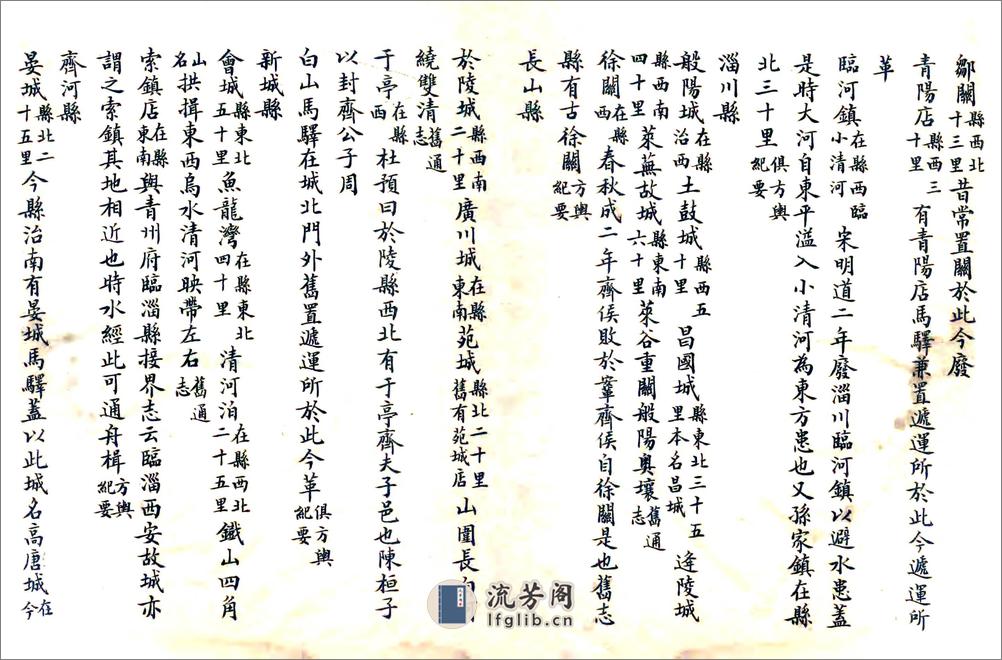 鄒關縣西北十三里昔常置關於此今廢
青陽店縣西三十里有青陽店馬驛兼置遞運所於此今遞運所
革
臨河鎮在縣西臨小清河宋明道二年廢淄川臨河鎮以避水患蓋
是時大河自東平溢入小清河為東方患也又孫家鎮在縣
北三十里俱方輿紀要
淄川縣
般陽城在縣治西土鼓城縣西五十里昌國城縣東北三十五里本名昌城逄陵城
縣西南四十里萊蕪故城縣東南六十里萊谷重關般陽奧壤舊通志
徐關在縣西春秋成二年齊侯敗於鞌齊侯自徐關是也舊志
縣有古徐關方輿紀要
長山縣
於陵城縣西南二十里廣川城在縣東南苑城縣北二十里舊有苑城店山圍長白
繞雙清舊通志
于亭在縣西杜預曰於陵縣西北有于亭齊夫子邑也陳桓子
以封齊公子周
白山馬驛在城北門外舊置遞運所於此今革俱方輿紀要
新城縣
會城縣東北五十里魚龍灣在縣東北四十里清河泊在縣西北二十五里鐵山四角
山名拱揖東西烏水清河映帶左右舊通志
索鎮店在縣東南與青州府臨淄縣接界志云臨淄西安故城亦
謂之索鎮其地相近也時水經此可通舟楫方輿紀要
齊河縣
晏城縣北二十五里今縣治南有晏城馬驛蓋以此城名高唐城在今
流芳阁
lfglib.cn